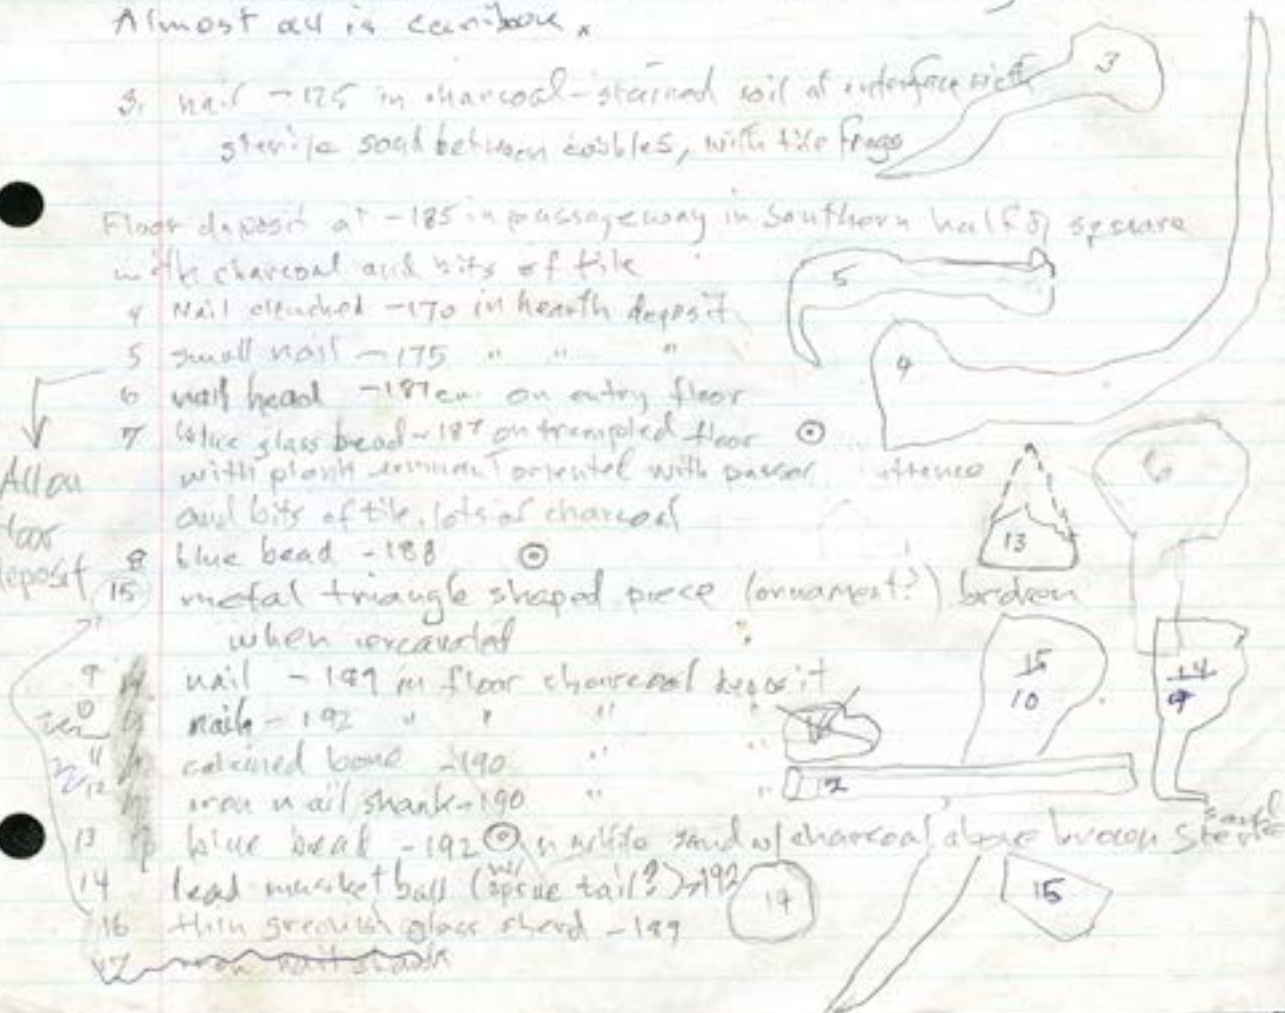 Almost all is caribou.
3. nail -175 in charcoal-stained soil at interface with
sterile sand between cobbles, with tile frags
3
Floor deposit at -185 in passageway in Southern half of square
with charcoal and bits of tile
4 Nail clenched -170 in hearth deposit
5 small nail -175 " " "
6 nail head -187cm on entry floor
7 blue glass bead -187 on trampled floor
with plank oriented with
and bits of tile, lots of charcoal
8 blue bead -188
15 metal triangle shaped piece (ornament?) broken
when excavated
9 nail - 189 in floor charcoal deposit
10 nail - 192 " " " "
11 calcined bone -190 " "
12 iron nail shank -190 " "
13 blue bead -192 in sand w/ charcoal above brown sterile sand
14 lead musket ball (w/ sprue tail?) -192
16 thin greenish glass sherd -189
17 iron nail shank
All on
floor
deposit
5
4
6
13
15
10
14
9
12
14
15